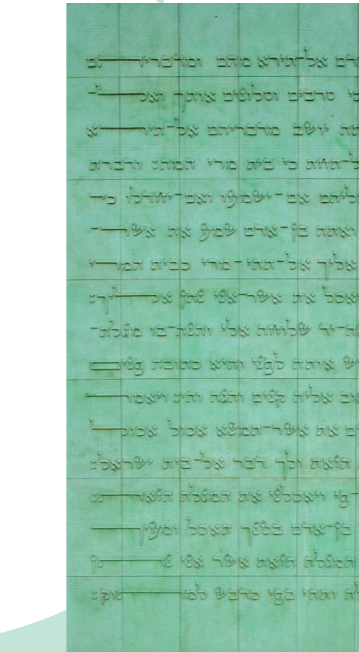 אל־תירא מהם ומדבריהם
כי סרבים וסלונים אותך ואל־
יושב מדבריהם אל־תירא
תחת כי בית מרי המה: ודברת
אליהם אם־ישמעו ואם־יחדלו כי
ואתה בן־אדם שמע את אשר־
אליך אל־תהי־מרי כבית המרי
ואכל את אשר־אני נתן אליך:
יד שלוחה אלי והנה־בו מגלת־
אותה לפני והיא כתובה פנים
אליה קנים והגה והי: ויאמר
את אשר־תמצא אכול אכול
הזאת ולך דבר אל־בית ישראל:
פי ויאכלני את המגלה הזאת:
בן־אדם בטנך תאכל ומעיך
המגלה הזאת אשר אני נתן
ותהי בפי כדבש למתוק: